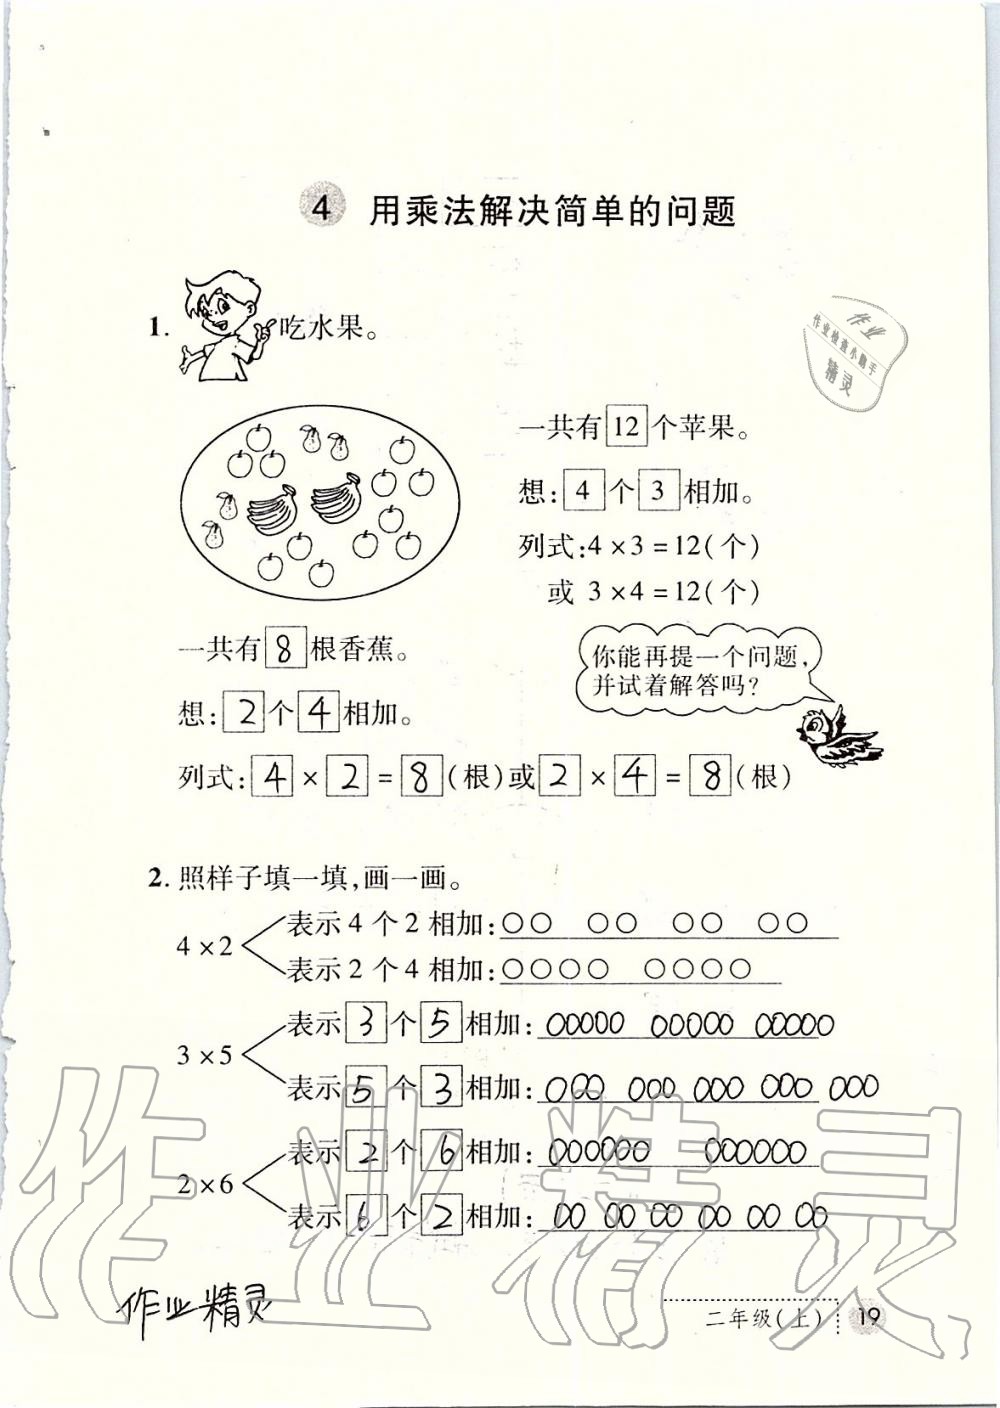 4 用乘法解决简单的问题
1. 吃水果。
作业
作业检查小助手
精灵
一共有12个苹果。
想:4个3相加。
列式:4×3=12(个)
或 3×4=12(个)
一共有8根香蕉。
想:2个4相加。
列式:4×2=8(根)或2×4=8(根)
你能再提一个问题,
并试着解答吗?
2.照样子填一填,画一画。
4×2
表示4个2相加:○○ ○○ ○○ ○○
表示2个4相加:○○○○ ○○○○
3×5
表示3个5相加:○○○○○ ○○○○○ ○○○○○
表示5个3相加:○○○ ○○○ ○○○ ○○○ ○○○
2×6
表示2个6相加:○○○○○○ ○○○○○○
表示6个2相加:○○ ○○ ○○ ○○ ○○ ○○
作业精灵
作业精灵
二年级(上) 19